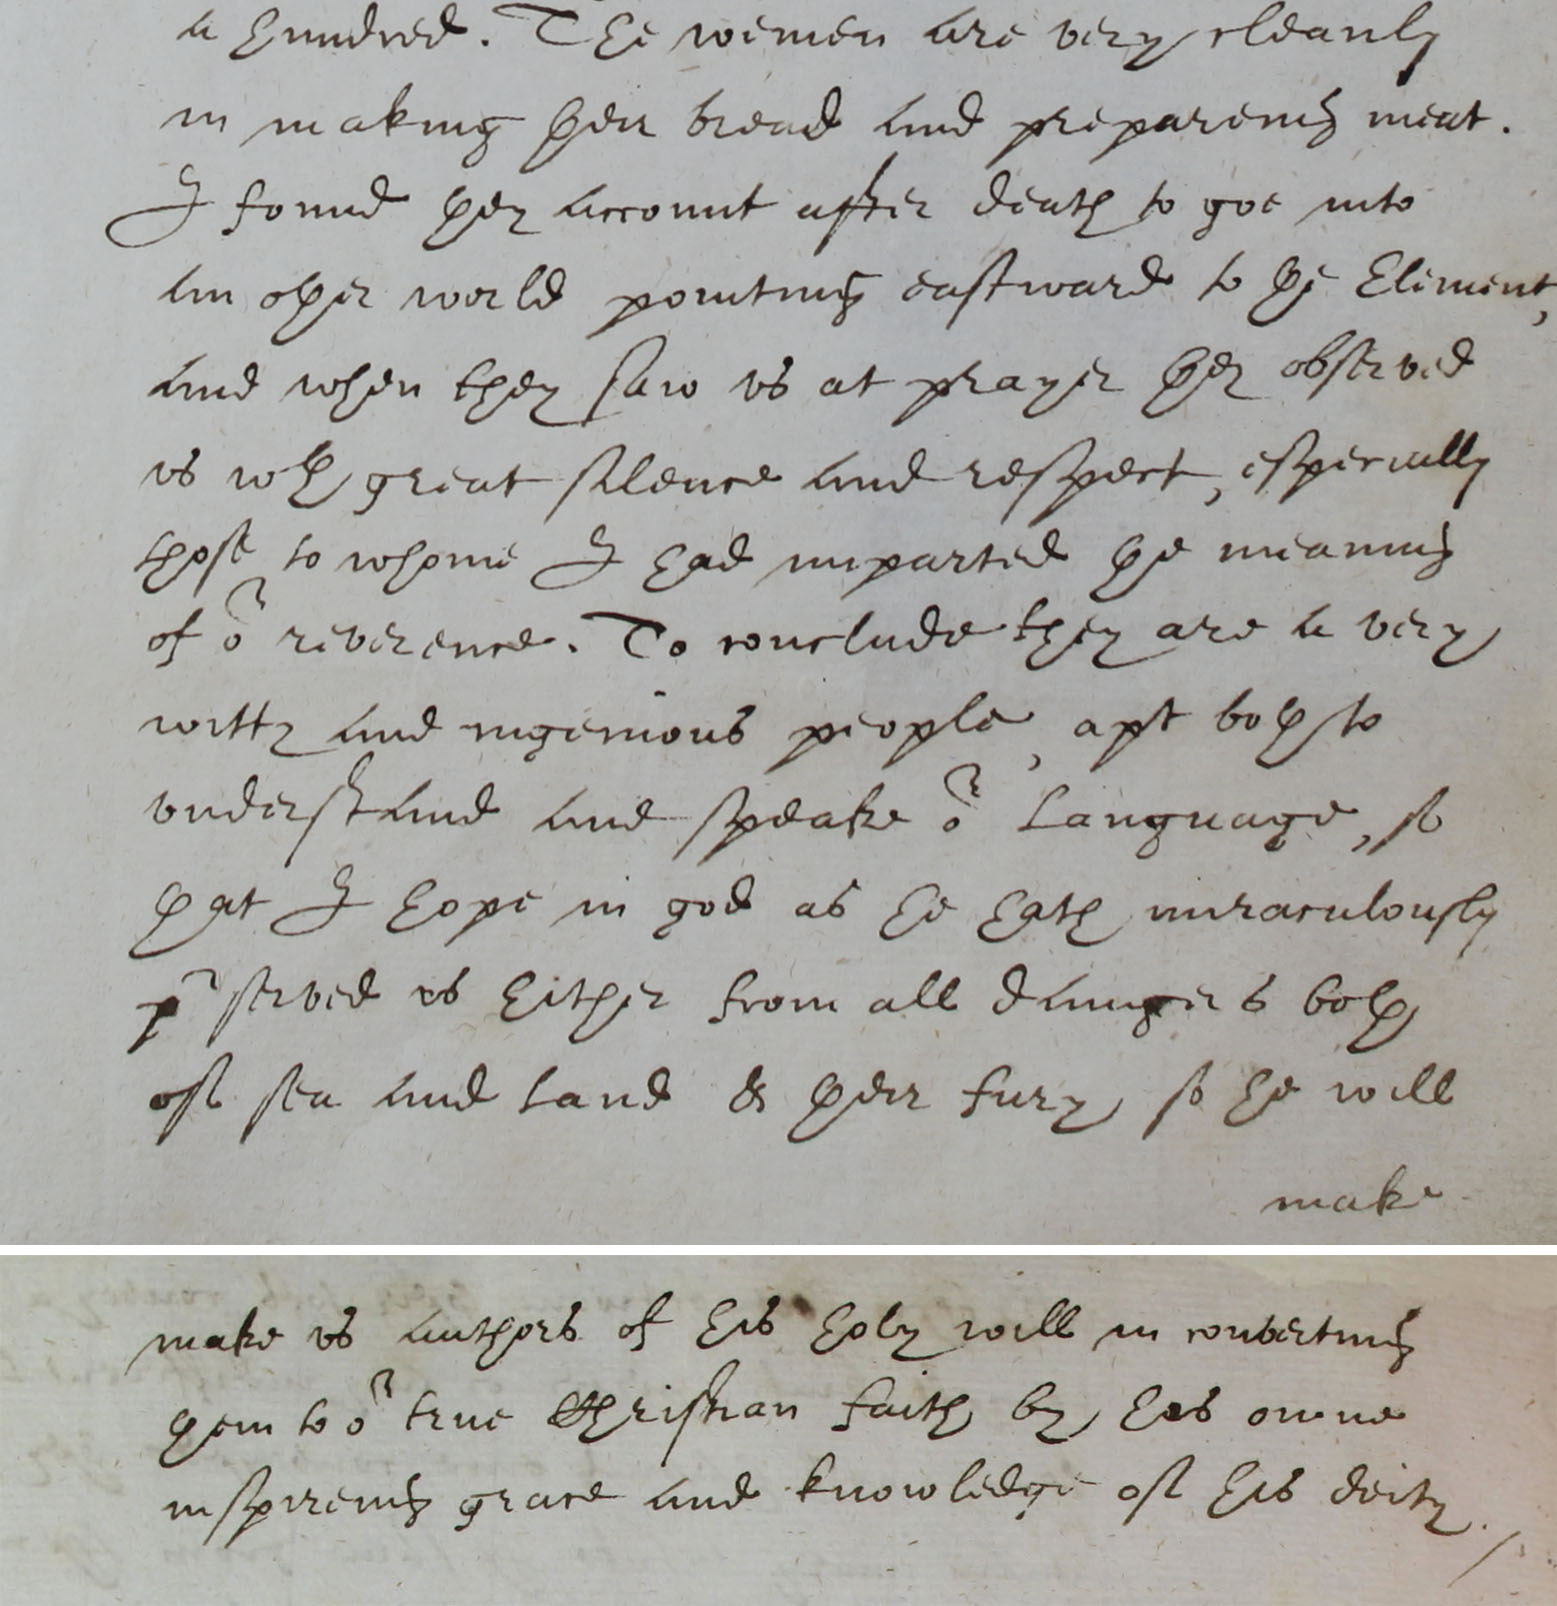 a hundred. The wemen are very cleanly
in making þeir bread and prepareing meat.
I found þey account after death to goe into
an oþer world pointing eastward to þe Element,
and when they saw vs at prayer þey observed
vs wth great silence and respect, especially
those to whome I had imparted þe meaning
of or reverence. To conclude they are a very
witty and ingenious people, apt boþ to
vnderstand and speake or language, so
þat I hope in god as he hath miraculously
pr served vs hither from all dangers boþ
of sea and land & þeir fury so he will
make
make vs authors of his holy will in converting
þem to or true Christian faith by his owne
inspireing grace and knowledge of his deity.